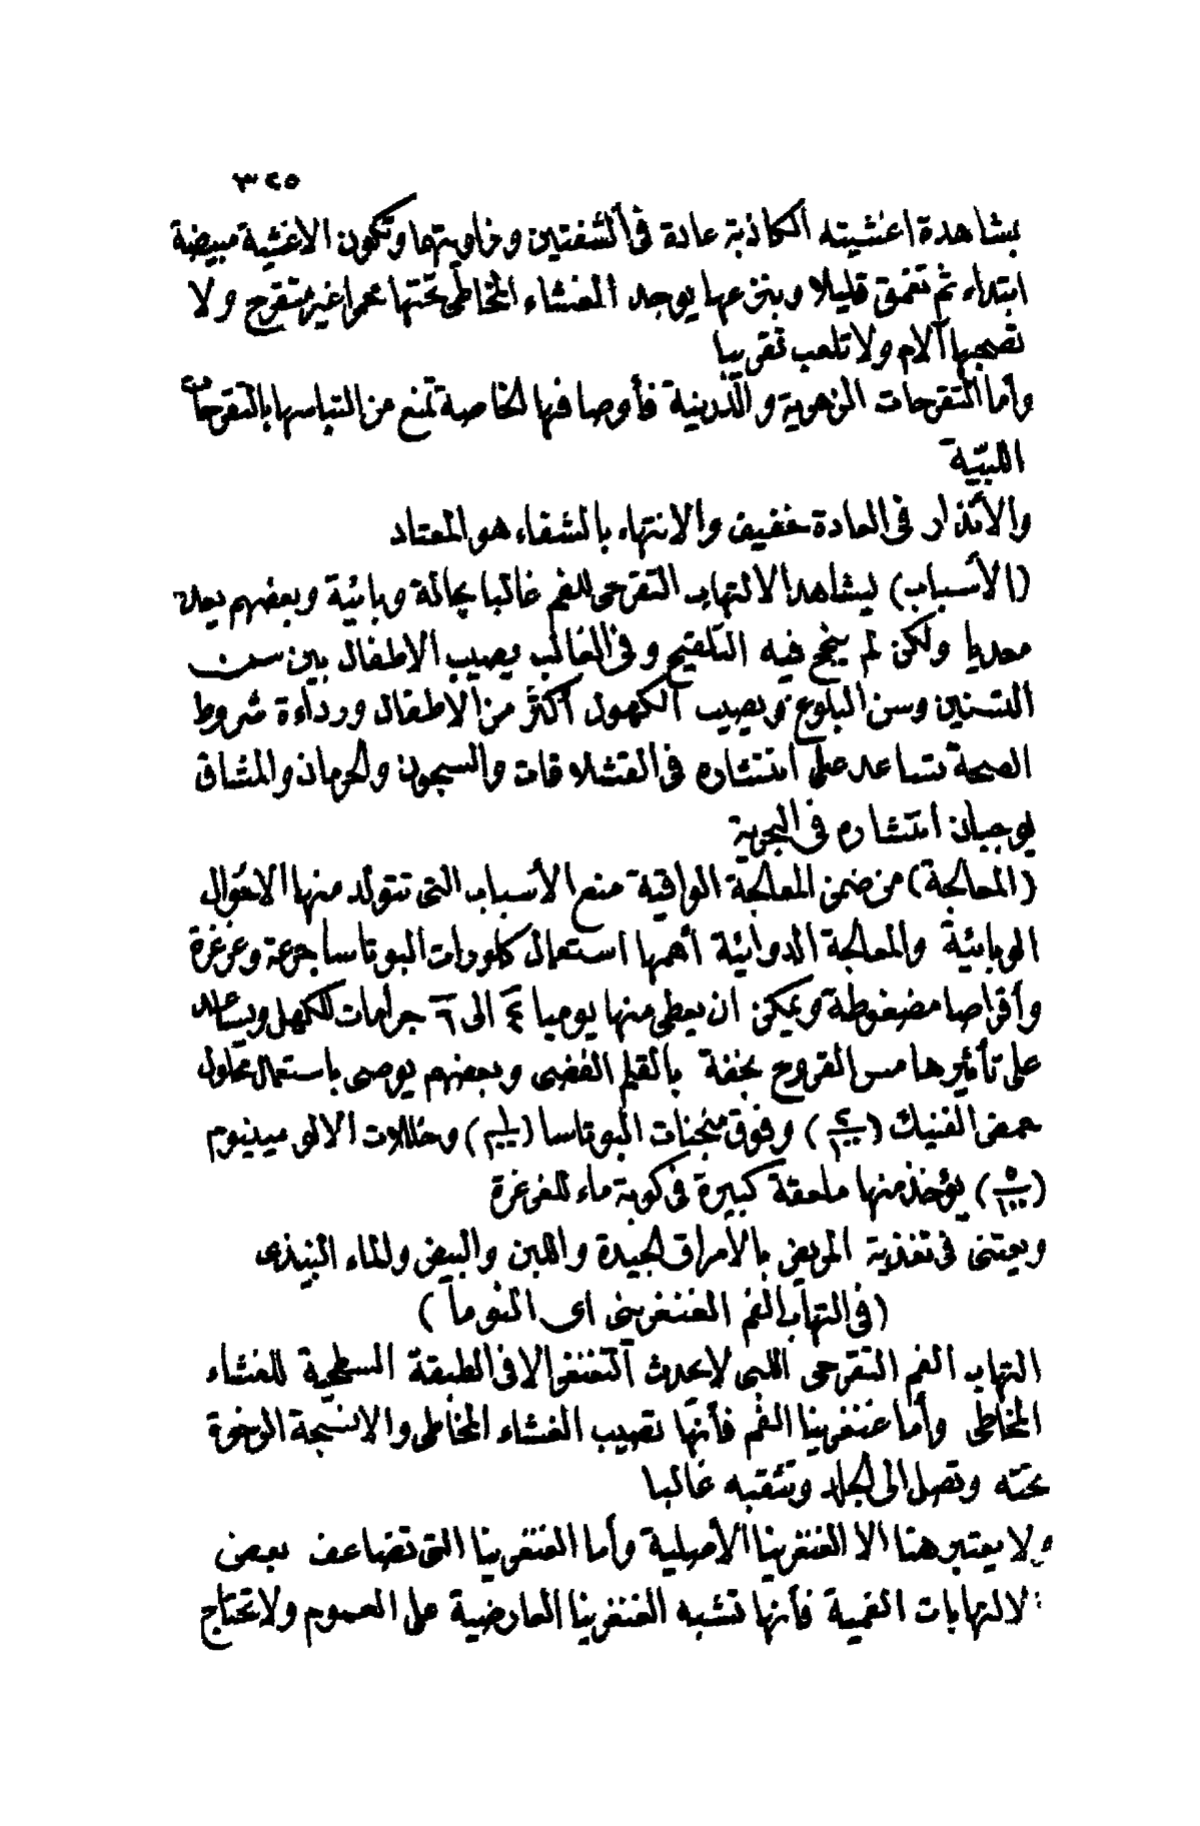 ٣٢٥
بشاهدة اغشيته الكاذبة عادة فى الشفتين وزاويتهما وتكون الاغشية مبيضة
ابتداء ثم تغمق قليلا وبنزعها يوجد الغشاء المخاطى تحتها محمرا غير متقرح ولا
تصحبها آلام ولا تلعب تقريبا
وأما التقرحات الزهرية والدرنية فأوصافها الخاصة تمنع من التباسها بالتقرحات
اللبّية
والأنذار فى العادة خفيف والانتهاء بالشفاء هو المعتاد
(الأسباب) يشاهد الالتهاب التقرحى للفم غالبا بحالة وبائية وبعضهم يعده
معديا ولكن لم ينجح فيه التلقيح وفى الغالب يصيب الاطفال بين سن
التسنين وسن البلوغ ويصيب الكهول أكثر من الاطفال ورداءة شروط
الصحة تساعد على انتشاره فى القشلاقات والسجون والحرمان والمشاق
يوجبان انتشاره فى البحرية
(المعالجة) من ضمن المعالجة الواقية منع الأسباب التى تتولد منها الاحوال
الوبائية والمعالجة الدوائية أهمها استعمال كلورات البوتاسا جرعة وغرغرة
وأقراصا مضغوطة ويمكن ان يعطى منها يوميا ٤ الى ٦ جرامات للكهل ويساعد
على تأثيرها مس القروح بخفة بالقلم الفضى وبعضهم يوصى باستعمال محلول
حمض الفنيك وفوق منجنات البوتاسا وخللات الالوميينيوم
(٥/١٠٠) يؤخذ منها ملعقة كبيرة فى كوبة ماء للغرغرة
ويعتنى فى تغذية المريض بالأمراق الجيدة واللبن والبيض والماء النبيذى
(فى التهاب الفم الغنغرينى اى النوما)
التهاب الفم التقرحى اللبى لا يحدث التغنغر الا فى الطبقة السطحية للغشاء
المخاطى وأما غنغرينا الفم فأنها تصيب الغشاء المخاطى والانسجة الرخوة
تحته وتصل الى الجلد وتثقبه غالبا
ولا يعتبر هنا الا الغنغرينا الأصلية وأما الغنغرينا التى تضاعف بعض
الالتهابات الفمية فأنها تشبه الغنغرينا العارضية على العموم ولا تحتاج